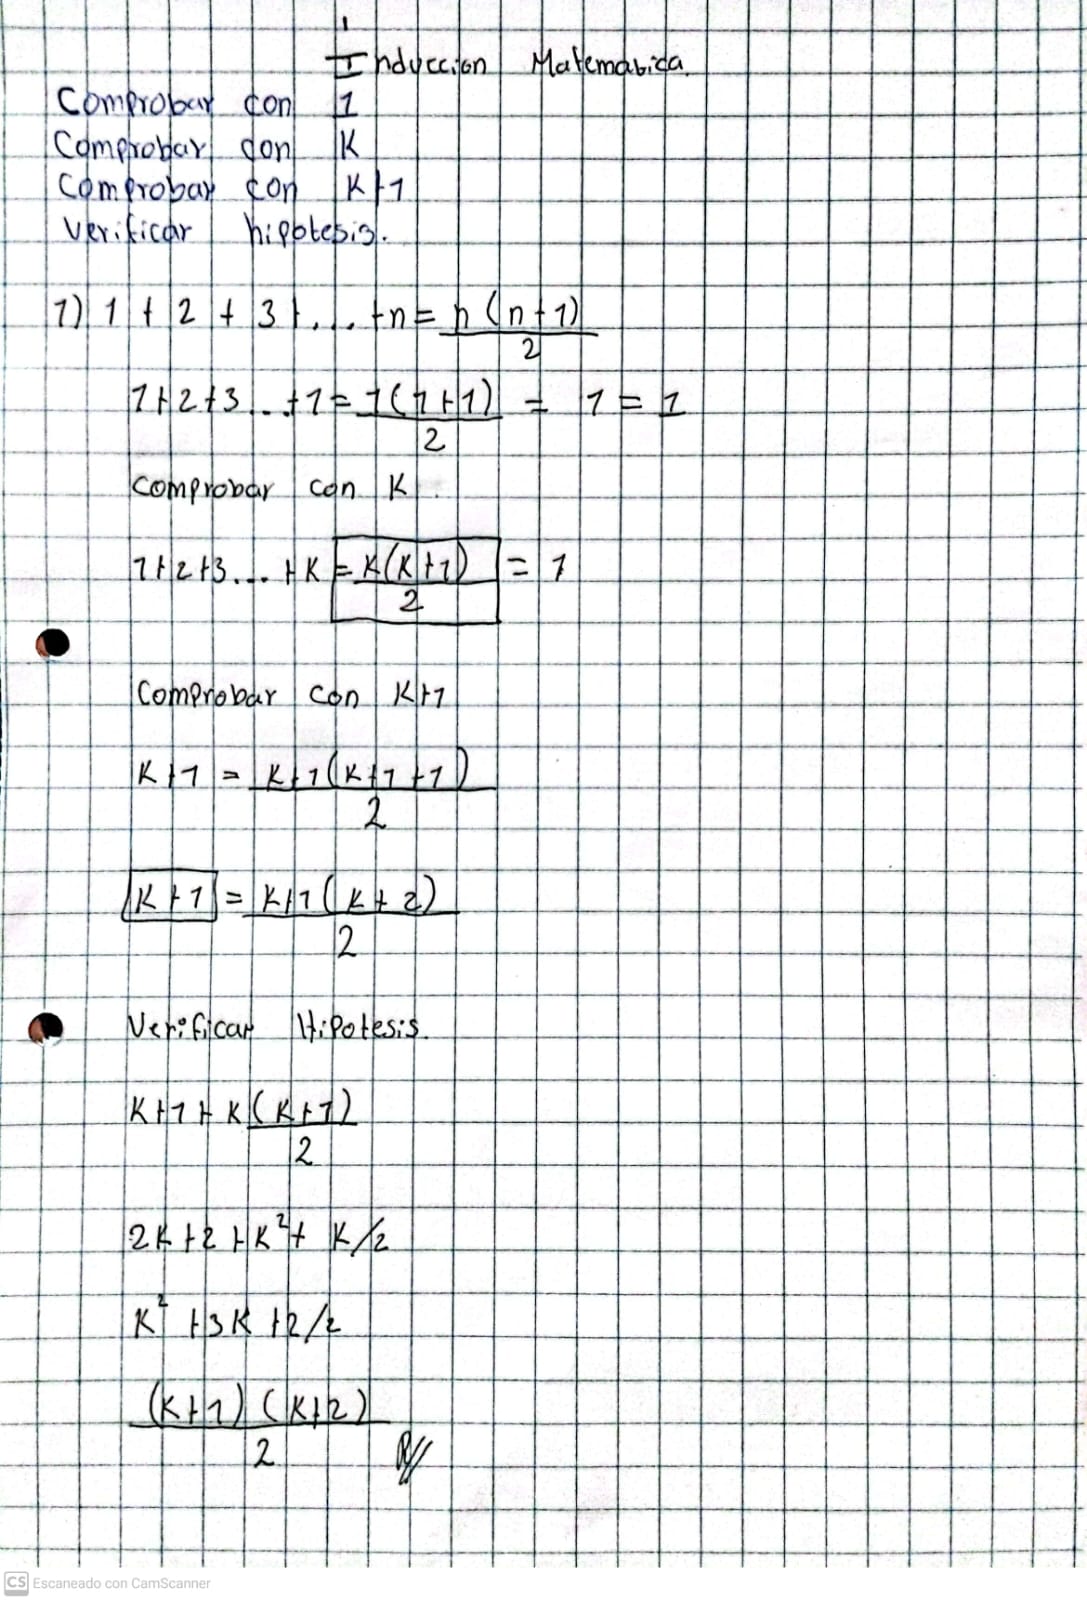 Inducción Matematica.
Comprobar con 1
Comprobar con K
Comprobar con K+1
Verificar hipotesis.
1) 1 + 2 + 3 + ... +n = n(n+1)/2
1+2+3...+1 = 1(1+1)/2 = 1 = 1
Comprobar con K.
1+2+3... +K = K(K+1)/2 = 1
Comprobar con K+1
K+1 = K+1(K+1+1)/2
K+1 = K+1(K+2)/2
Verificar Hipotesis.
K+1+K(K+1)/2
2K+2+K²+K/2
K²+3K+2/2
(K+1)(K+2)/2 R//
CS Escaneado con CamScanner